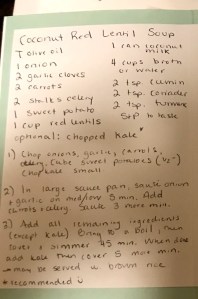 Coconut Red Lentil Soup
T olive oil
1 onion
2 garlic cloves
2 carrots
2 stalks celery
1 sweet potato
1 cup red lentils
1 can coconut milk
4 cups broth or water
2 tsp. cumin
2 tsp. coriander
2 tsp. turmeric
S&P to taste
optional: chopped kale*
1) Chop onions, garlic, carrots,
celery. Cube sweet potatoes (½")
Chop kale small
2) In large sauce pan, sauté onion
+ garlic on med/low 5 min. Add
carrots + celery. Sauté 3 more min.
3) Add all remaining ingredients
(except kale). Bring to a boil, then
cover + simmer 45 min. When done
add kale then cover 5 more min.
may be served w. brown rice
*recommended